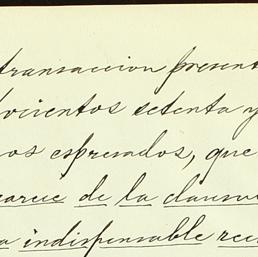 transaccion present
ovcientos setenta y
os espresados, que
carece de la clausu
a indispensable rec